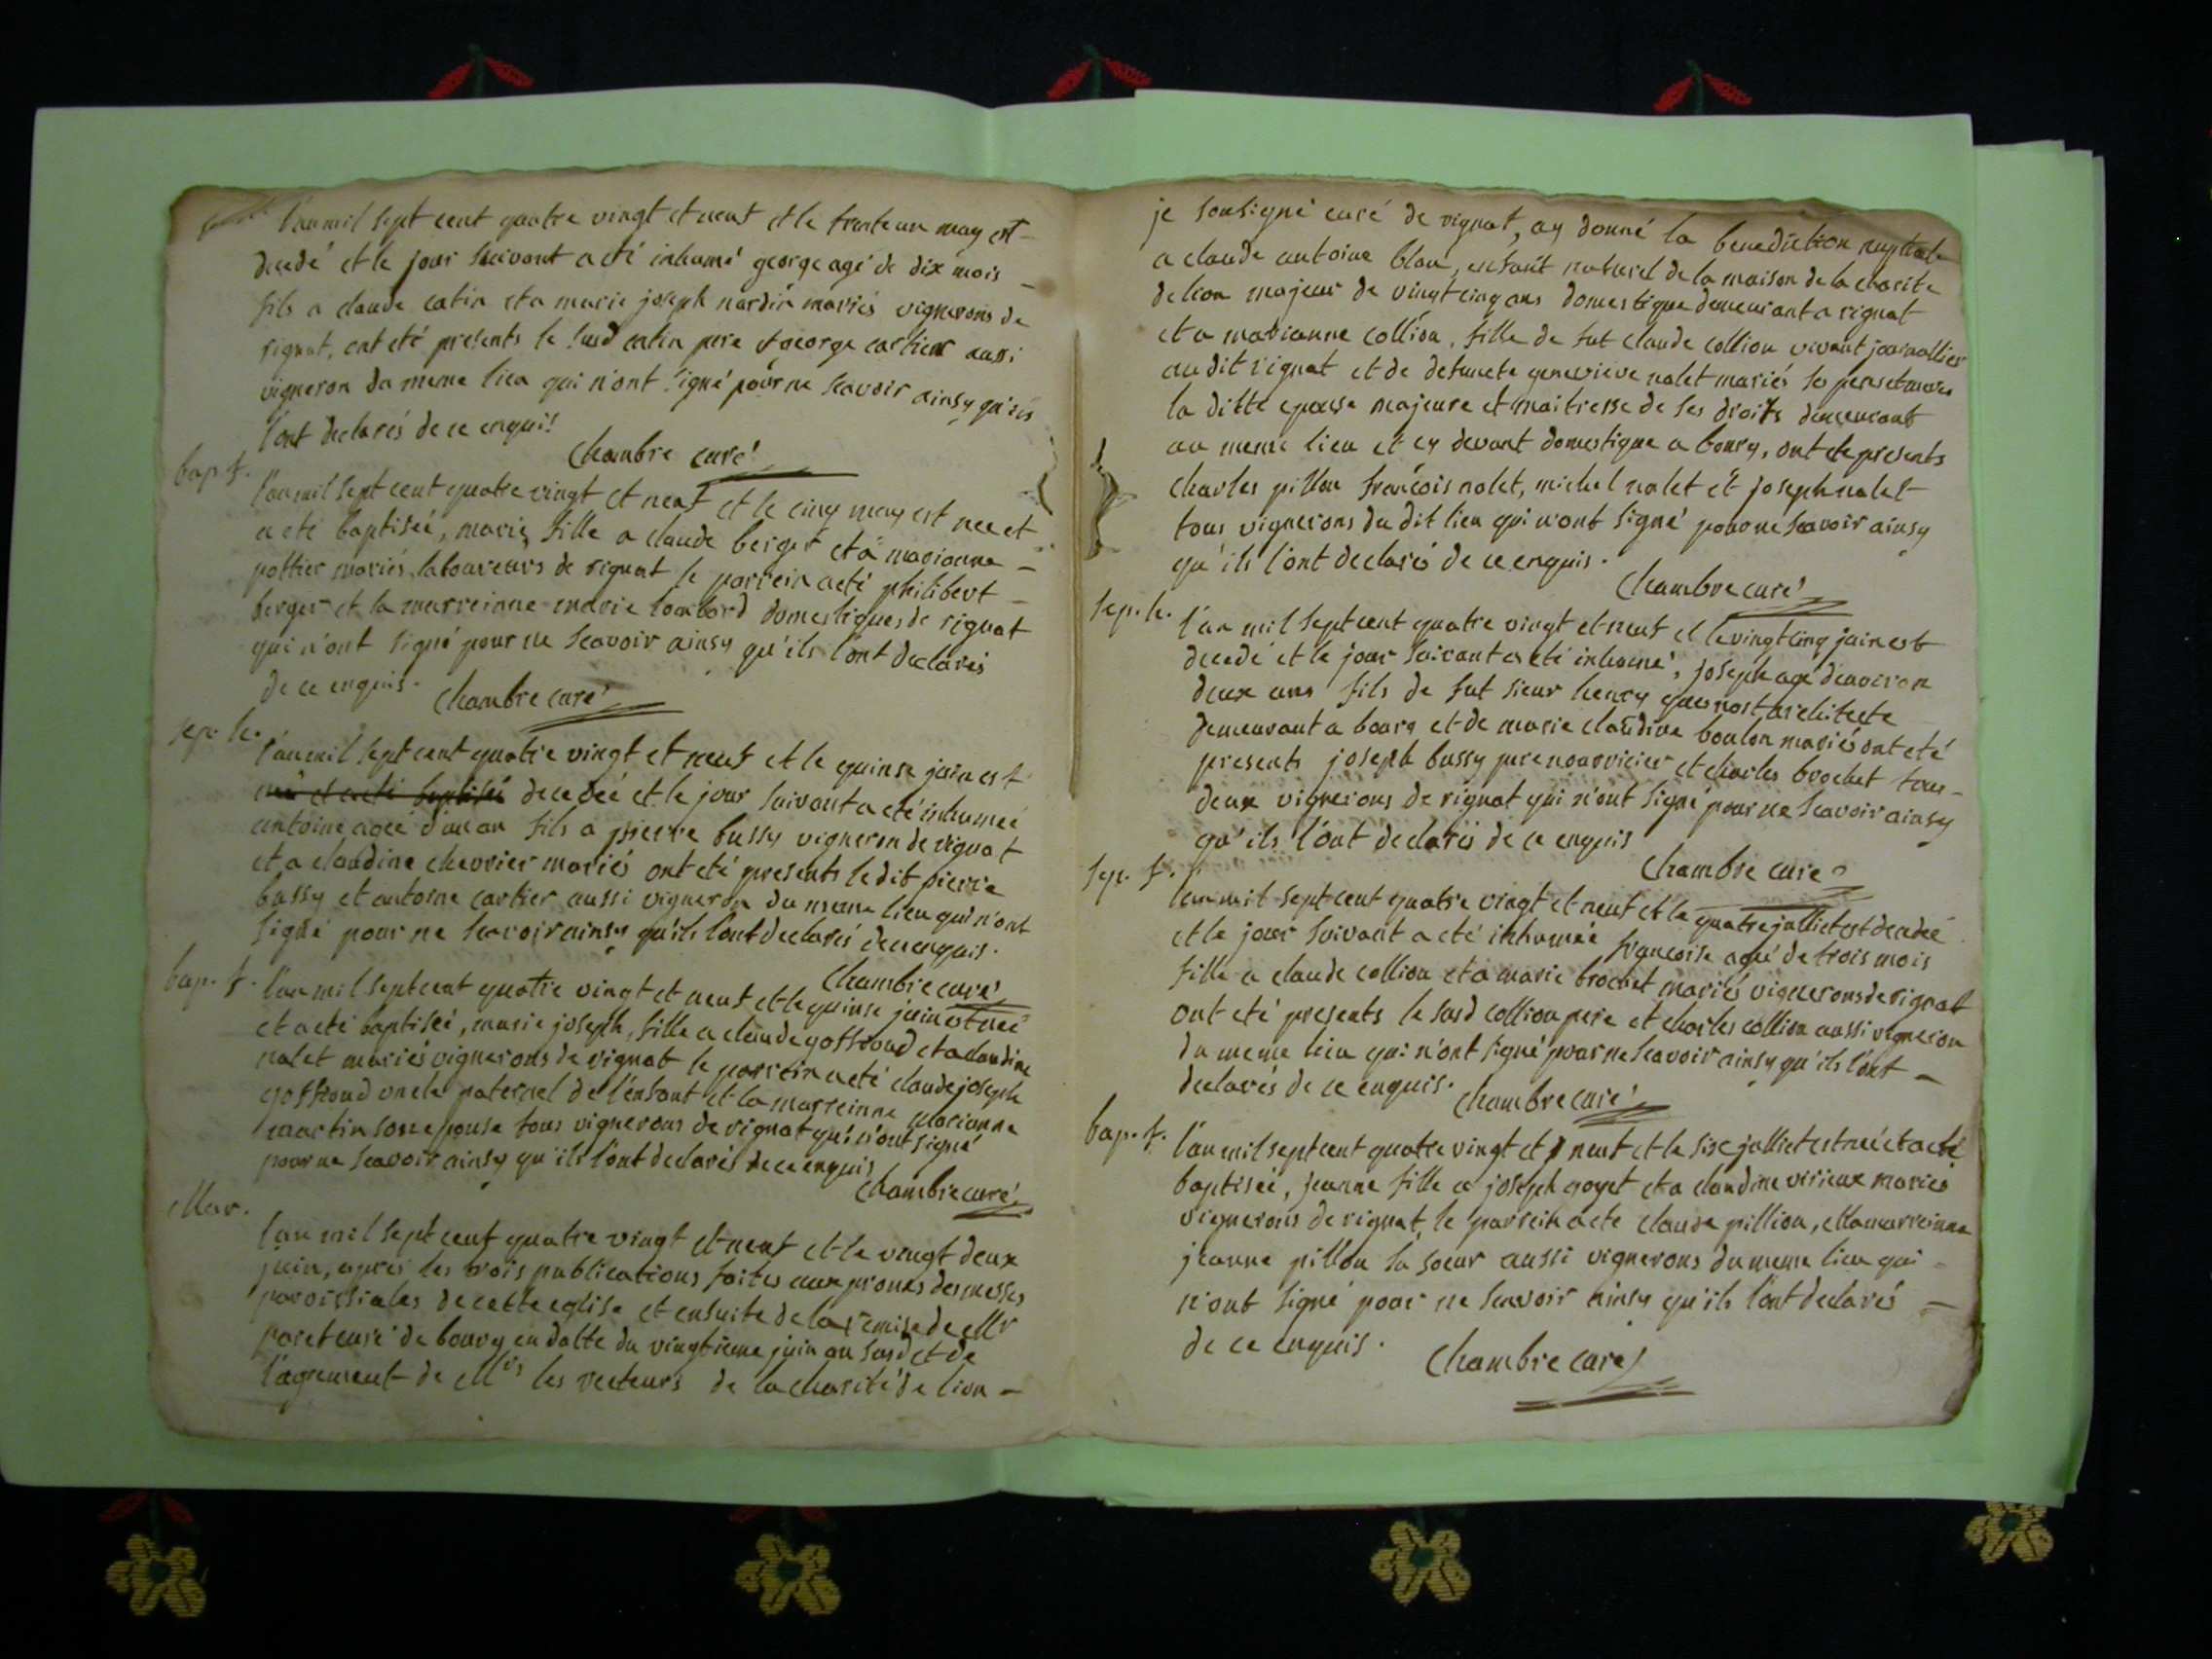 l'an mil sept cent quatre vingt et neuf et le trente un may est
decedé et le jour suivant a eté inhumé george agé de dix mois
fils a claude catin et a marie joseph nardin mariés vignerons de
rignat, ont eté presents le susd catin pere et george cartier aussi
vigneron du meme lieu qui n'ont signé pour ne scavoir ainsy qu'ils
l'ont declarés de ce enquis
Chambre curé
bap. f.
l'an mil sept cent quatre vingt et neuf et le cinq may est nee et
a eté baptiseé, marie, fille a claude berger et a marianne
pottier mariés laboureurs de rignat le parrein a eté philibert
berger et la marreinne marie lombard domestiques de rignat
qui n'ont signé pour ne scavoir ainsy qu'ils l'ont declarés
de ce enquis.
Chambre curé
sep. h.
l'an mil sept cent quatre vingt et neuf et le quinse juin est
decedeé et le jour suivant a eté inhumeé
antoine ageé d'un an fils a pierre bussy vigneron de rignat
et a claudine chevrier mariés ont eté presents le dit pierre
bussy et antoine cartier aussi vigneron du meme lieu qui n'ont
signé pour ne scavoir ainsy qu'ils l'ont declarés de ce enquis.
Chambre curé
bap. f.
l'an mil sept cent quatre vingt et neuf et le quinse juin est neé
et a eté baptiseé, marie joseph, fille a claude goffroud et a claudine
nalet mariés vignerons de rignat le parrein a eté claude joseph
goffroud oncle paternel de l'enfant et la marreinne marianne
martin son epouse tous vignerons de rignat qui n'ont signé
pour ne scavoir ainsy qu'ils l'ont declarés de ce enquis
Chambre curé
Mar.
l'an mil sept cent quatre vingt et neuf et le vingt deux
juin, apres les trois publications faites aux prones des messes
paroissiales de cette eglise et ensuite de la remise de Mr
curé de bourg en datte du vingtieme juin an susd et de
l'agrement de Mrs les recteurs de la charité de lion
je sousigné curé de rignat, ay donné la benediction nuptiale
a claude antoine blan, enfant naturel de la maison de la charite
de lion majeur de vingt cinq ans domestique demeurant a rignat
et a marianne collion, fille de fut claude collion vivant journallier
au dit rignat et de defuncte genevieve nalet mariés ses pere et mere
la ditte epouse majeure et maitresse de ses droits demeurant
au meme lieu et cy devant domestique a bourg, ont ete presents
charles pillon françois nalet, michel nalet et joseph nalet
tous vignerons du dit lieu qui n'ont signé pour ne scavoir ainsy
qu'ils l'ont declarés de ce enquis.
Chambre curé
sep. h.
l'an mil sept cent quatre vingt et neuf et le vingt cinq juin est
decedé et le jour suivant a eté inhumé, joseph agé d'environ
deux ans fils de fut sieur henry architecte
demeurant a bourg et de marie claudine boulon mariés ont eté
presents joseph bussy pere nourricier et charles brochet tous
deux vignerons de rignat qui n'ont signé pour ne scavoir ainsy
qu'ils l'ont declarés de ce enquis
Chambre curé
sep. f.
l'an mil sept cent quatre vingt et neuf et le quatre julliet est decedeé
et le jour suivant a eté inhumeé françoise ageé de trois mois
fille a claude collion et a marie brochet mariés vignerons de rignat
ont eté presents le susd collion pere et charles collion aussi vigneron
du meme lieu qui n'ont signé pour ne scavoir ainsy qu'ils l'ont
declarés de ce enquis.
Chambre curé
bap. f.
l'an mil sept cent quatre vingt et neuf et le six julliet est neé et a eté
baptiseé, jeanne fille a joseph goyet et a claudine virieux mariés
vignerons de rignat, le parrein a ete claude pillion, et la marreinne
jeanne pillon sa soeur aussi vignerons du meme lieu qui
n'ont signé pour ne scavoir ainsy qu'ils l'ont declarés
de ce enquis.
Chambre curé